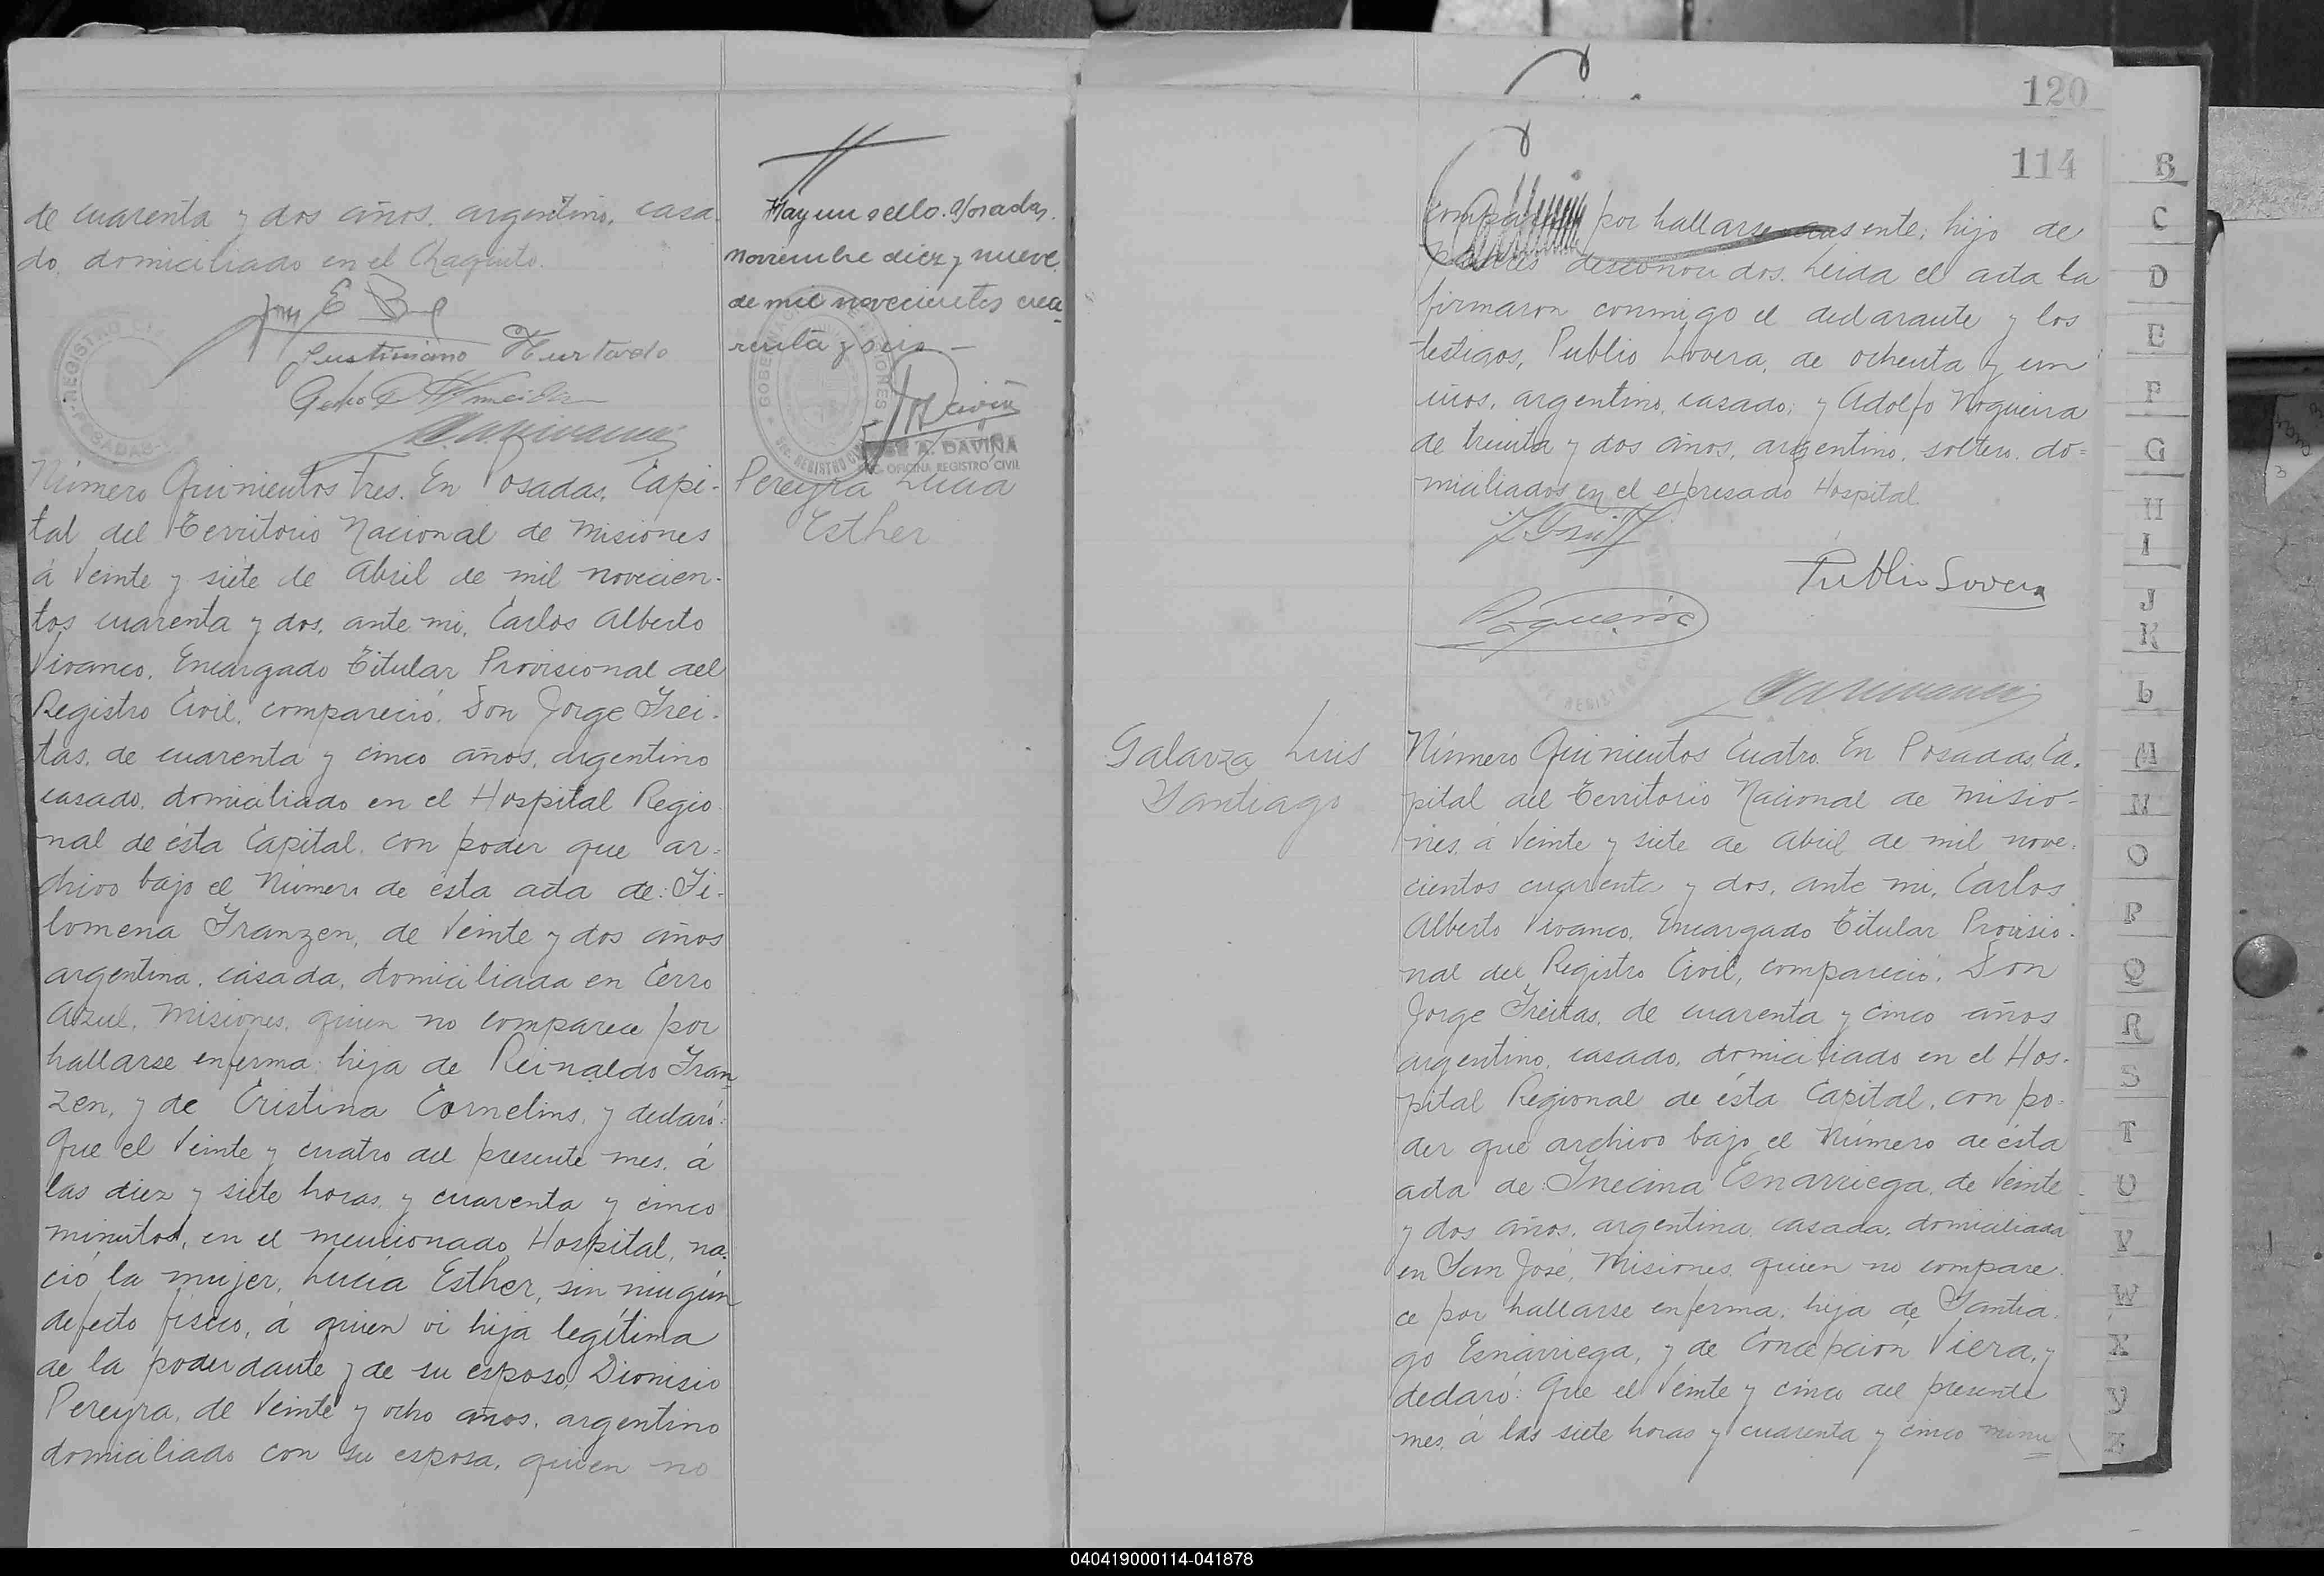 de cuarenta y dos años, argentino, casa-
do, domiciliado en el Chaquito.
Justiniano Hurtado
REGISTRO CI
POSADAS
Hay un sello. Posadas,
noviembre diez y nueve
de mil novecientos cua-
renta y seis —
GOBERNACION DE MISIONES
SEC. REGISTRO CIVIL
JOSE A. DAVIÑA
OFICINA REGISTRO CIVIL
Pereyra Lucía
Esther
Número Quinientos Tres. En Posadas, Capi-
tal del Territorio Nacional de Misiones
á Veinte y siete de Abril de mil novecien-
tos cuarenta y dos, ante mi, Carlos Alberto
Vivanco, Encargado Titular Provisional del
Registro Civil, compareció, Don Jorge Frei-
tas, de cuarenta y cinco años, argentino
casado, domiciliado en el Hospital Regio
nal de ésta Capital, con poder que ar-
chivo bajo el Número de ésta acta de: Fi-
lomena Franzen, de Veinte y dos años
argentina, casada, domiciliada en Cerro
Azul, Misiones, quien no comparece por
hallarse enferma, hija de Reinaldo Fran
zen, y de Cristina Cornelius, y declaró:
Que el Veinte y cuatro del presente mes, á
las diez y siete horas, y cuarenta y cinco
minutos, en el mencionado Hospital, na-
ció la mujer, Lucía Esther, sin ningún
defecto físico, á quien vi hija legítima
de la poderdante y de su esposo, Dionisio
Pereyra, de Veinte y ocho años, argentino
domiciliado con su esposa, quien no
120
114
comparece por hallarse ausente, hijo de
padres desconocidos. Leida el acta la
firmaron conmigo el declarante y los
testigos, Publio Lovera, de ochenta y un
años, argentino, casado, y Adolfo Nogueira
de treinta y dos años, argentino, soltero, do-
miciliados en el expresado Hospital.
Publio Lovera
Nogueira
Galarza Luis
Santiago
Número Quinientos Cuatro. En Posadas, Ca-
pital del Territorio Nacional de Misio-
nes, á Veinte y siete de Abril de mil nove-
cientos cuarenta y dos, ante mi, Carlos
Alberto Vivanco, Encargado Titular Provisio-
nal del Registro Civil, compareció, Don
Jorge Freitas, de cuarenta y cinco años
argentino, casado, domiciliado en el Hos-
pital Regional de ésta Capital, con po-
der que archivo bajo el Número de ésta
acta de: Inecina Esnarriega, de Veinte
y dos años, argentina, casada, domiciliada
en San José, Misiones, quien no compare-
ce por hallarse enferma, hija de Santia-
go Esnarriega, y de Concepcion Viera, y
declaró: Que el Veinte y cinco del presente
mes, á las siete horas y cuarenta y cinco minu
B
C
D
E
F
G
H
I
J
K
L
M
N
O
P
Q
R
S
T
U
V
W
X
Y
Z
040419000114-041878